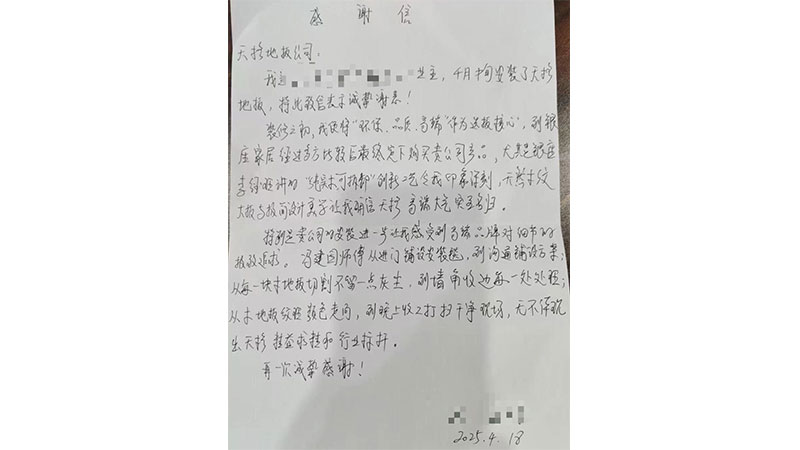 感 谢 信
天格地板公司:
我是 业主,4月中旬安装了天格
地板,特此致信表示诚挚谢意!
装修之初,我便将“环保、品质、高端”作为选板核心,到银
座家居经过多方比较后最终定下购买贵公司产品,尤其是银座
李经理讲的“纯实木可拆卸”创新工艺令我印象深刻,天然木纹
大板与极简设计美学让我确信天格高端大气实至名归。
特别是贵公司的安装进一步让我感受到高端品牌对细节的
极致追求。冯建国师傅从进门铺设安装毯,到沟通铺设方案;
从每一块木地板切割不留一点灰尘,到墙角收边每一处处理;
从木地板纹理颜色走向,到晚上收工打扫干净现场,无不体现
出天格精益求精和行业标杆。
再一次诚挚感谢!
2025.4.18